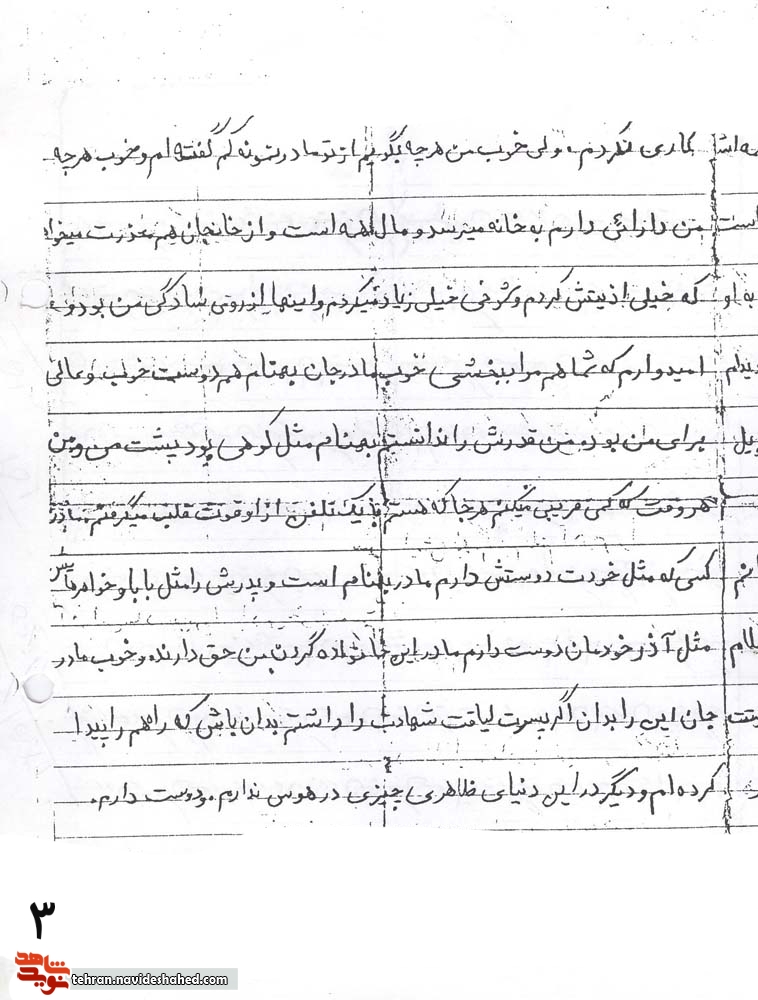 کاری نکردم. ولی خوب من هرچه بگویم از تو مادر نمونه کم گفته ام و خوب هرچه
من دارائی دارم به خانه میرسد و مال همه است و از خانجان هم معذرت میخواهم
که خیلی اذیتش کردم و شوخی خیلی زیاد میکردم و اینها از روی سادگی من بود و
امیدوارم که شما هم مرا ببخشی خوب مادرجان بهنام هم دوست خوب و عالی
برای من بود. من قدرش را ندانستم بهنام مثل کوهی بود پشت من و من
هر وقت که کمی غریبی میکنم هرجا که هستم با یک تلفن از او قوت قلب میگرفتم. مادر
کسی که مثل خودت دوستش دارم مادر بهنام است و پدرش را مثل بابا و خواهرهاش
مثل آذر خودمان دوست دارم مادر این خانواده گردن من حق دارند و خوب مادر
جان این را بدان اگر پسرت لیاقت شهادت را داشتم بدان باش که راهم را پیدا
کرده ام و دیگر در این دنیای ظاهری چیزی در هوس ندارم. دوست دارم.
۳
نوید شاهد
tehran.navideshahed.com